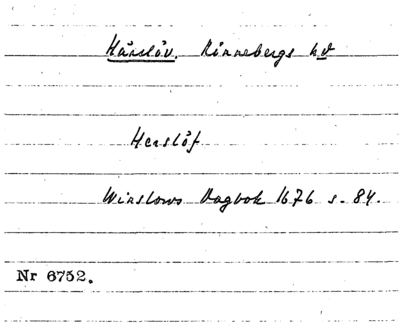 Hårslöv. Rönnebergs hd
Herslöf
Winslows Dagbok 1676 s. 84.
Nr 6752.